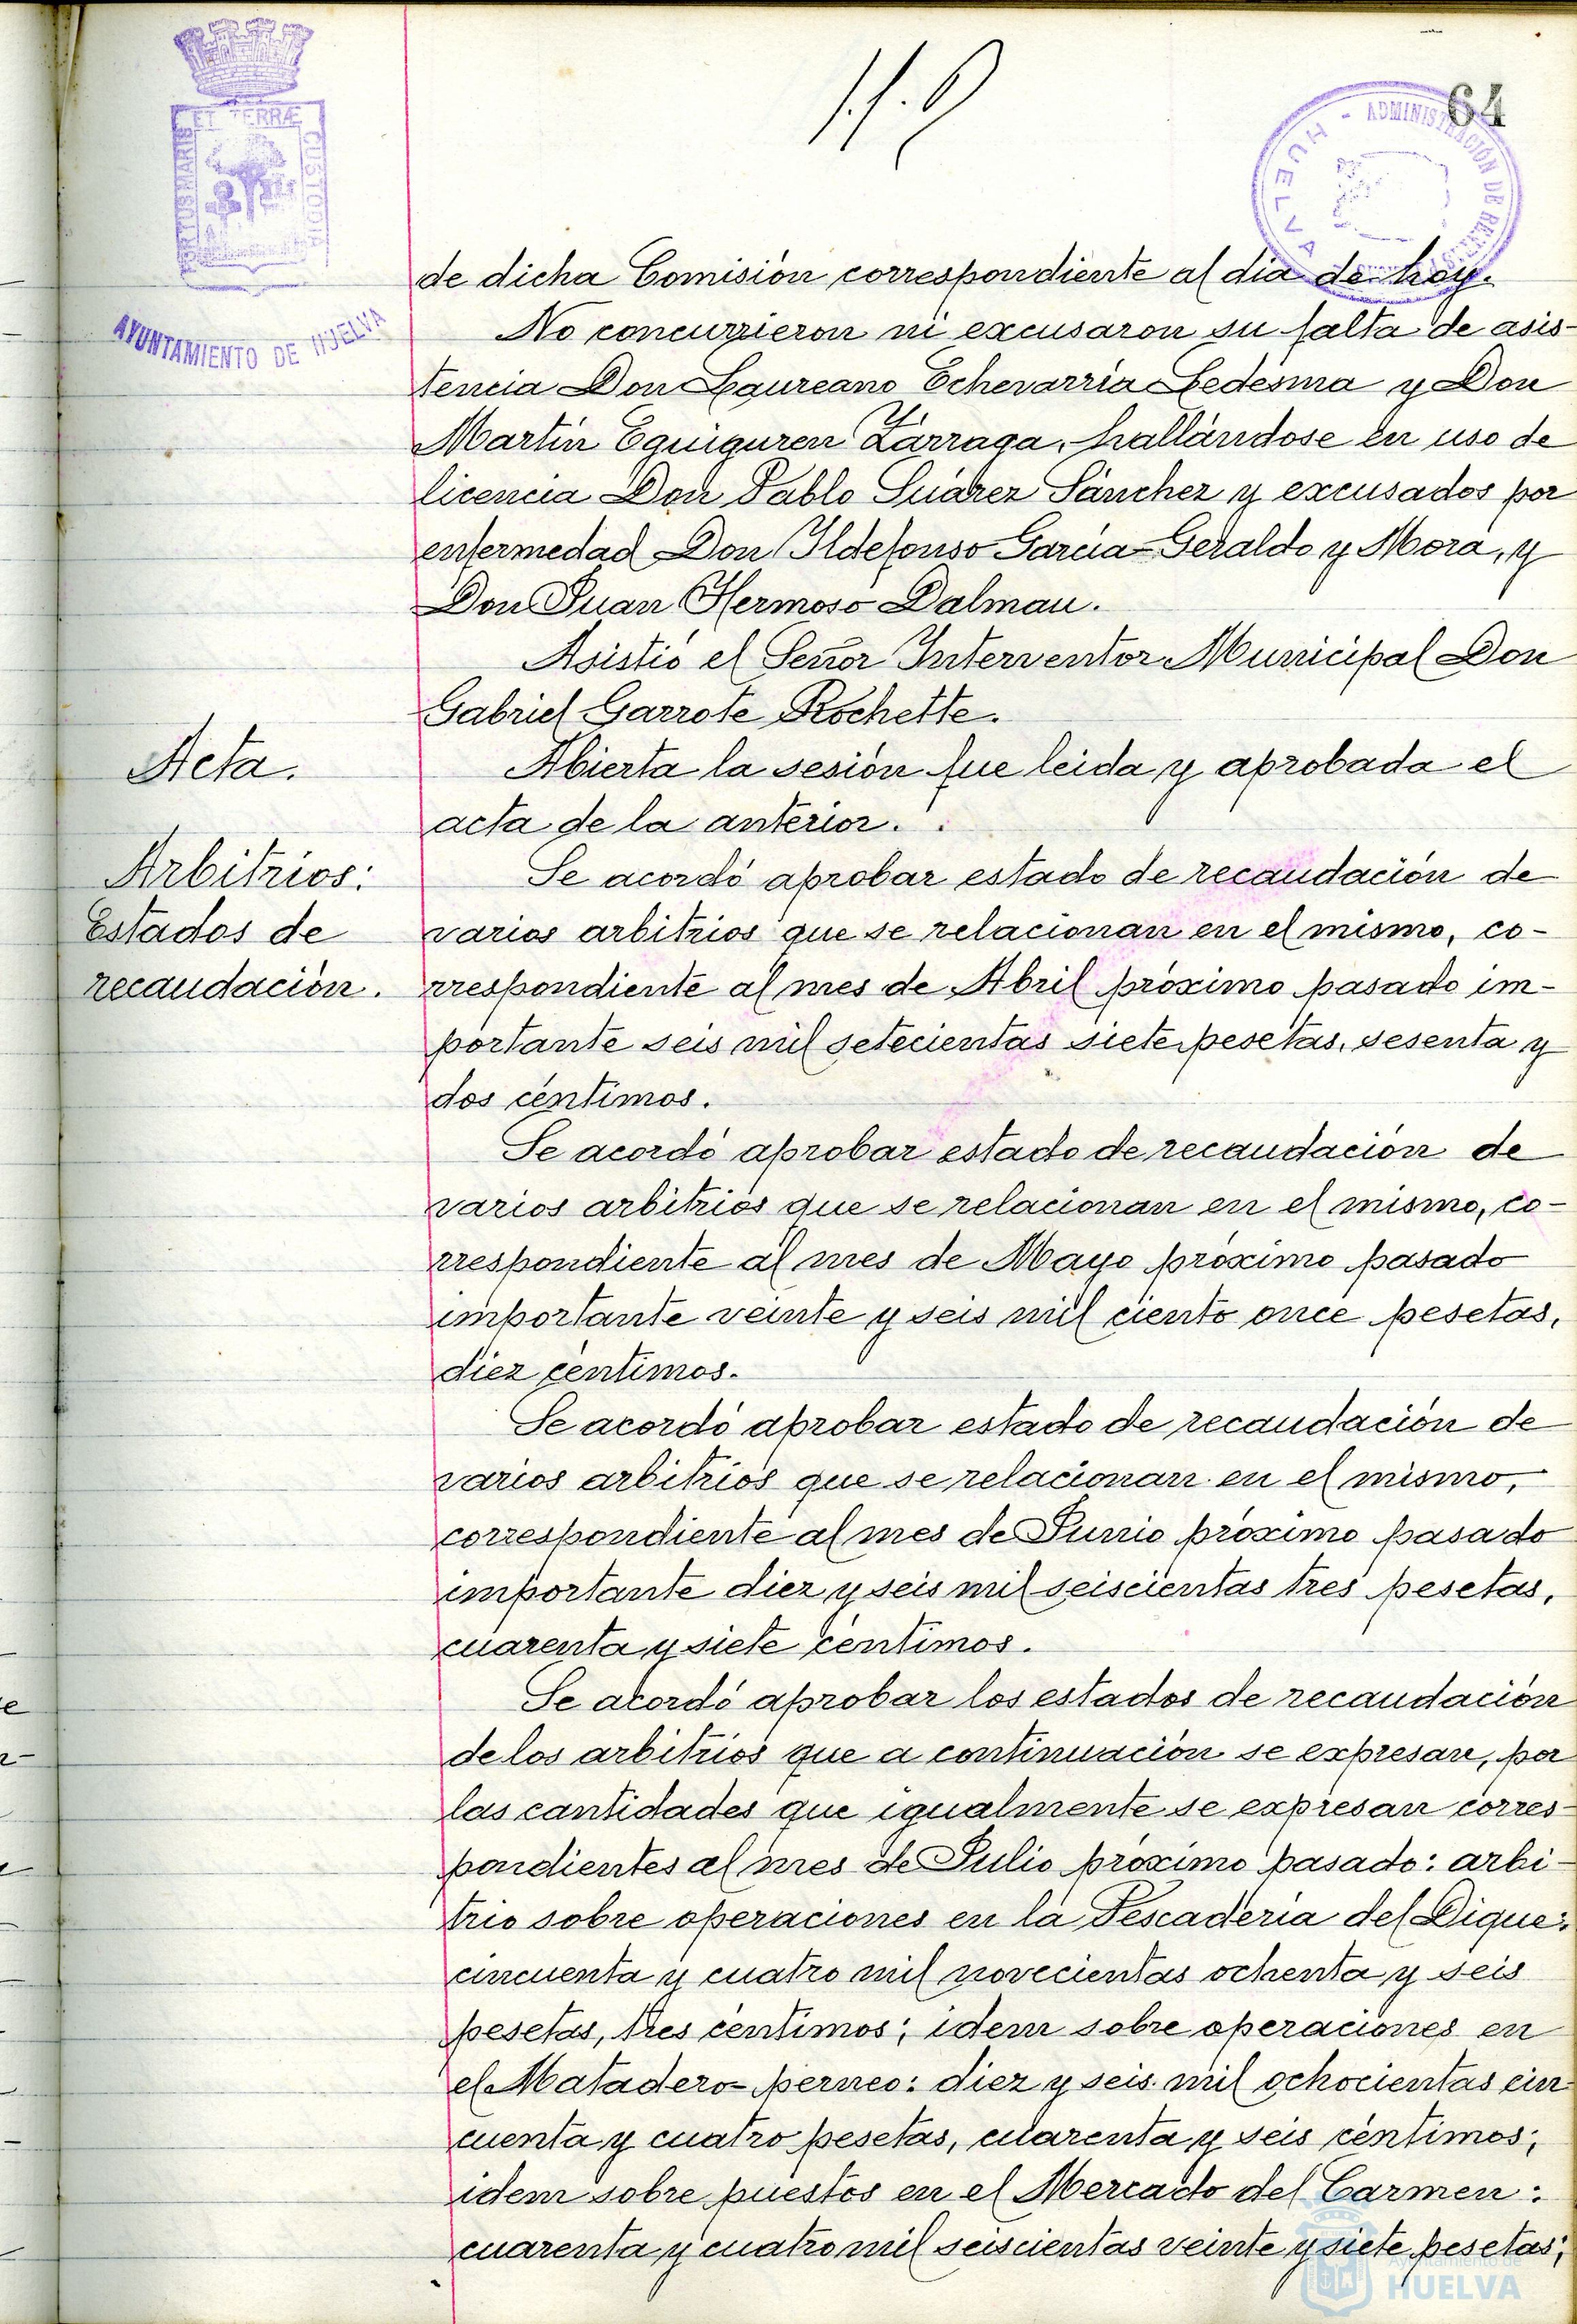 64
PORTUS MARIS ET TERRÆ CUSTODIA
AYUNTAMIENTO DE HUELVA
HUELVA - ADMINISTRACIÓN DE
de dicha Comisión correspondiente al dia de hoy.
No concurrieron ni excusaron su falta de asis-
tencia Don Laureano Echevarría Ledesma y Don
Martín Eguiguren Lárraga, hallándose en uso de
licencia Don Pablo Suárez Sánchez y excusados por
enfermedad Don Ildefonso García-Geraldo y Mora, y
Don Juan Hermoso Dalmau.
Asistió el Señor Interventor Municipal Don
Gabriel Garrote Rochette.
Acta.
Abierta la sesión fue leida y aprobada el
acta de la anterior.
Arbitrios:
Estados de
recaudación.
Se acordó aprobar estado de recaudación de
varios arbitrios que se relacionan en el mismo, co-
rrespondiente al mes de Abril próximo pasado im-
portante seis mil setecientas siete pesetas, sesenta y
dos céntimos.
Se acordó aprobar estado de recaudación de
varios arbitrios que se relacionan en el mismo, co-
rrespondiente al mes de Mayo próximo pasado
importante veinte y seis mil ciento once pesetas,
diez céntimos.
Se acordó aprobar estado de recaudación de
varios arbitrios que se relacionan en el mismo,
correspondiente al mes de Junio próximo pasado
importante diez y seis mil seiscientas tres pesetas,
cuarenta y siete céntimos.
Se acordó aprobar los estados de recaudación
de los arbitrios que a continuación se expresan, por
las cantidades que igualmente se expresan corres-
pondientes al mes de Julio próximo pasado: arbi-
trio sobre operaciones en la Pescadería del Dique:
cincuenta y cuatro mil novecientas ochenta y seis
pesetas, tres céntimos; idem sobre operaciones en
el Matadero-perneo: diez y seis mil ochocientas cin-
cuenta y cuatro pesetas, cuarenta y seis céntimos;
idem sobre puestos en el Mercado del Carmen:
cuarenta y cuatro mil seiscientas veinte y siete pesetas;
Ayuntamiento de
HUELVA